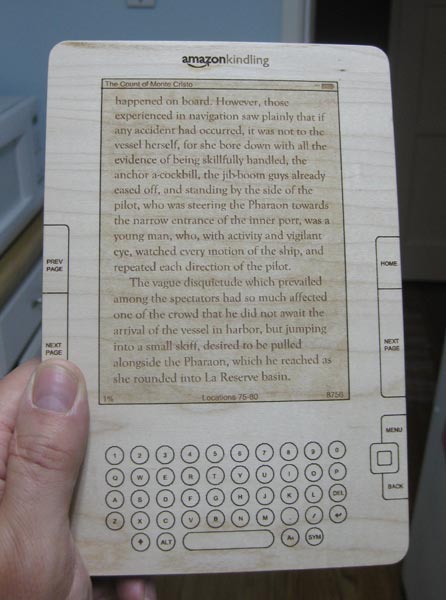 amazonkindling
The Count of Monte Cristo
happened on board. However, those
experienced in navigation saw plainly that if
any accident had occurred, it was not to the
vessel herself, for she bore down with all the
evidence of being skillfully handled, the
anchor a-cockbill, the jib-boom guys already
eased off, and standing by the side of the
pilot, who was steering the Pharaon towards
the narrow entrance of the inner port, was a
young man, who, with activity and vigilant
eye, watched every motion of the ship, and
repeated each direction of the pilot.
The vague disquietude which prevailed
among the spectators had so much affected
one of the crowd that he did not await the
arrival of the vessel in harbor, but jumping
into a small skiff, desired to be pulled
alongside the Pharaon, which he reached as
she rounded into La Reserve basin.
1% Locations 75-80 8756
PREV
PAGE
NEXT
PAGE
HOME
NEXT
PAGE
MENU
BACK
1 2 3 4 5 6 7 8 9 0
Q W E R T Y U I O P
A S D F G H J K L DEL
Z X C V B N M . /
ALT Aa SYM